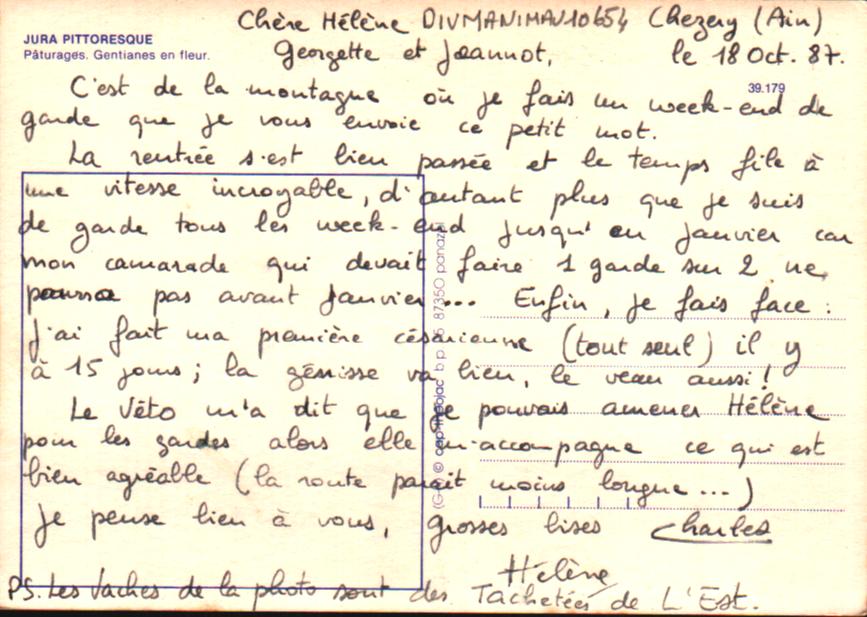 JURA PITTORESQUE
Pâturages. Gentianes en fleur.
39.179
Chère Hélène DIVMANIMAV10654 Chezery (Ain)
Georgette et Jeannot, le 18 Oct. 87.
C'est de la montagne où je fais un week-end de
garde que je vous envoie ce petit mot.
La rentrée s'est bien passée et le temps file à
une vitesse incroyable, d'autant plus que je suis
de garde tous les week-end jusqu'en janvier car
mon camarade qui devait faire 1 garde sur 2 ne
pourra pas avant Janvier... Enfin, je fais face :
j'ai fait ma première césarienne (tout seul) il y
à 15 jours ; la génisse va bien, le veau aussi !
Le Véto m'a dit que je pouvais amener Hélène
pour les gardes alors elle m'accompagne ce qui est
bien agréable (la route parait moins longue...)
Je pense bien à vous, grosses bises Charles
Hélène
PS. Les Vaches de la photo sont des Tachetées de L'Est.
87350 panazol